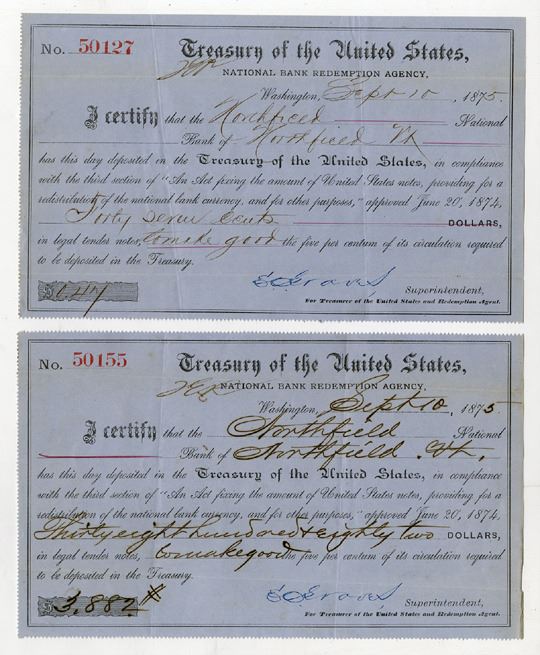 No. 50127
Treasury of the United States,
NATIONAL BANK REDEMPTION AGENCY,
Washington, Sept 10, 1875.
I certify that the Northfield National
Bank of Northfield Vt
has this day deposited in the Treasury of the United States, in compliance
with the third section of "An Act fixing the amount of United States notes, providing for a
redistribution of the national bank currency, and for other purposes," approved June 20, 1874,
Forty Seven Cents DOLLARS,
in legal tender notes, to make good the five per centum of its circulation required
to be deposited in the Treasury.
$ .47
Superintendent,
For Treasurer of the United States and Redemption Agent.
No. 50155
Treasury of the United States,
NATIONAL BANK REDEMPTION AGENCY,
Washington, Sept 10, 1875
I certify that the Northfield National
Bank of Northfield. Vt.
has this day deposited in the Treasury of the United States, in compliance
with the third section of "An Act fixing the amount of United States notes, providing for a
redistribution of the national bank currency, and for other purposes," approved June 20, 1874,
Thirty eight hundred & eighty two DOLLARS,
in legal tender notes, to make good the five per centum of its circulation required
to be deposited in the Treasury.
$3,882
Superintendent,
For Treasurer of the United States and Redemption Agent.